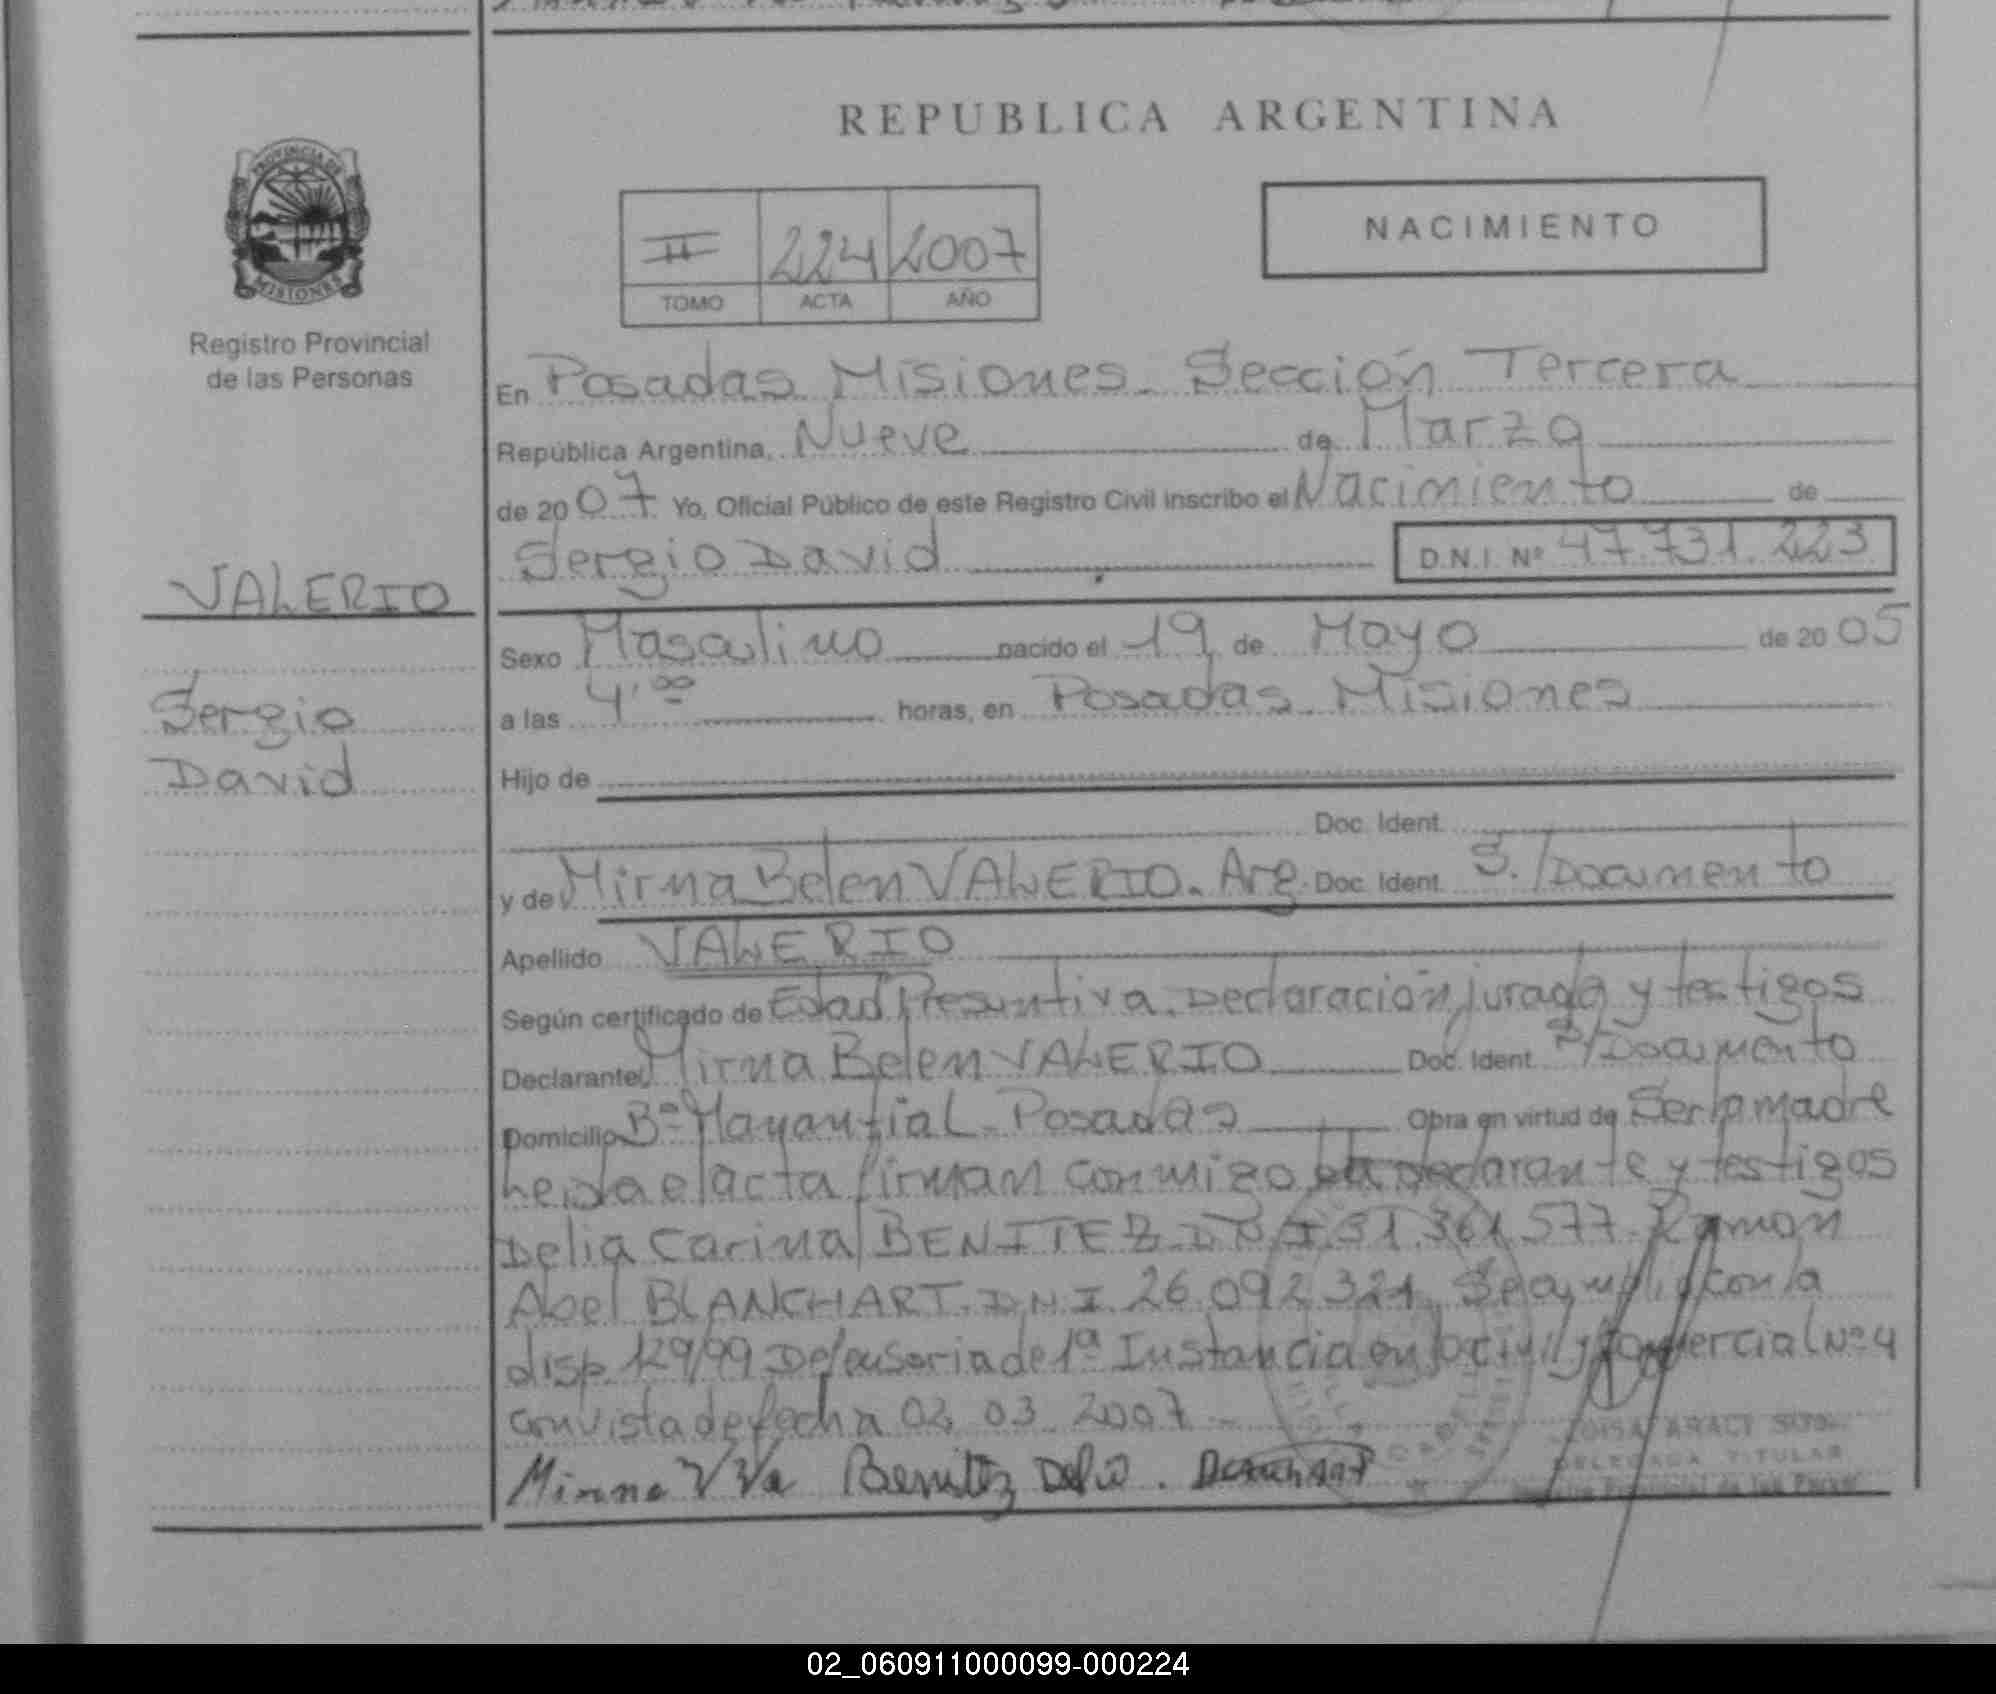 REPUBLICA ARGENTINA
PROVINCIA DE
MISIONES
Registro Provincial
de las Personas
II 224 2007
TOMO ACTA AÑO
NACIMIENTO
En Posadas Misiones. Sección Tercera
República Argentina, Nueve de Marzo
de 2007 Yo, Oficial Público de este Registro Civil inscribo el Nacimiento de
Sergio David D.N.I. Nº 47.731.223
VALERIO
Sergio
David
Sexo Masculino nacido el 19 de Mayo de 2005
a las 4,00 horas, en Posadas Misiones
Hijo de
Doc. Ident.
y de Mirna Belen VALERIO. Arg. Doc. Ident. S./Documento
Apellido VALERIO
Según certificado de Edad Presuntiva. Declaración jurada y testigos
Declarante Mirna Belen VALERIO Doc. Ident. S/Documento
Domicilio Bº Mayantial Posadas Obra en virtud de Ser la madre
Leida el acta firman conmigo la declarante y testigos
Delia Carina BENITEZ DNI 31.361.577. Ramon
Abel BLANCHART. D.N.I. 26.092.321. Se amplia con la
disp. 129/99 Defensoria de 1ª Instancia en lo civil y Comercial Nº 4
con vista de fecha 02 03 2007
Benitez Delia.
DELEGADA TITULAR
02_060911000099-000224